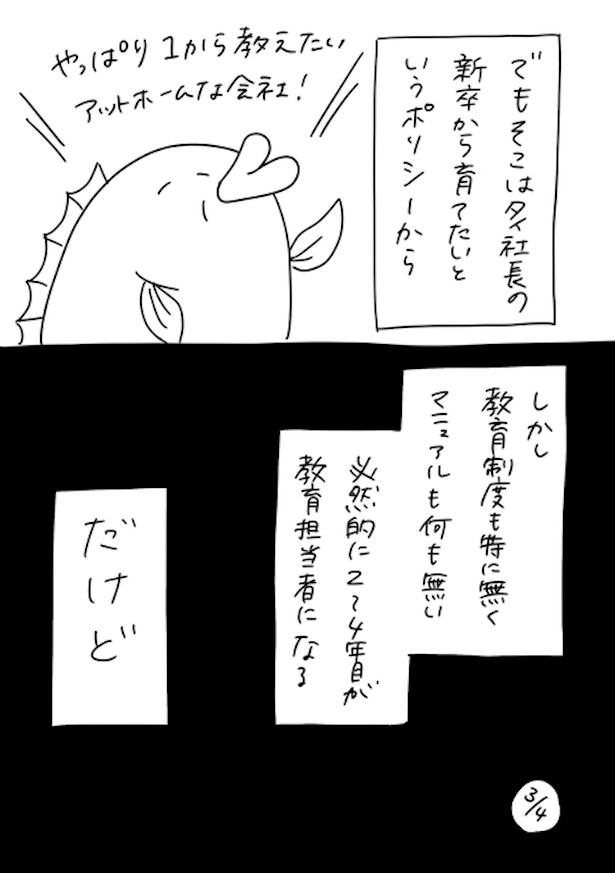 でもそこはタイ社長の
新卒から育てたいと
いうポリシーから
やっぱり1から教えたい
アットホームな会社!
しかし
教育制度も特に無く
マニュアルも何も無い
必然的に2〜4年目が
教育担当者になる
だけど
3/4